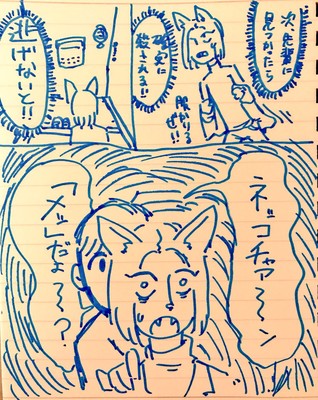 次先輩に
見つかったら
確実に
殺される!!
服かりる
ぜ!!
逃げないと!!
ネッコチャア〜〜ン
「メッ」だよ〜〜?